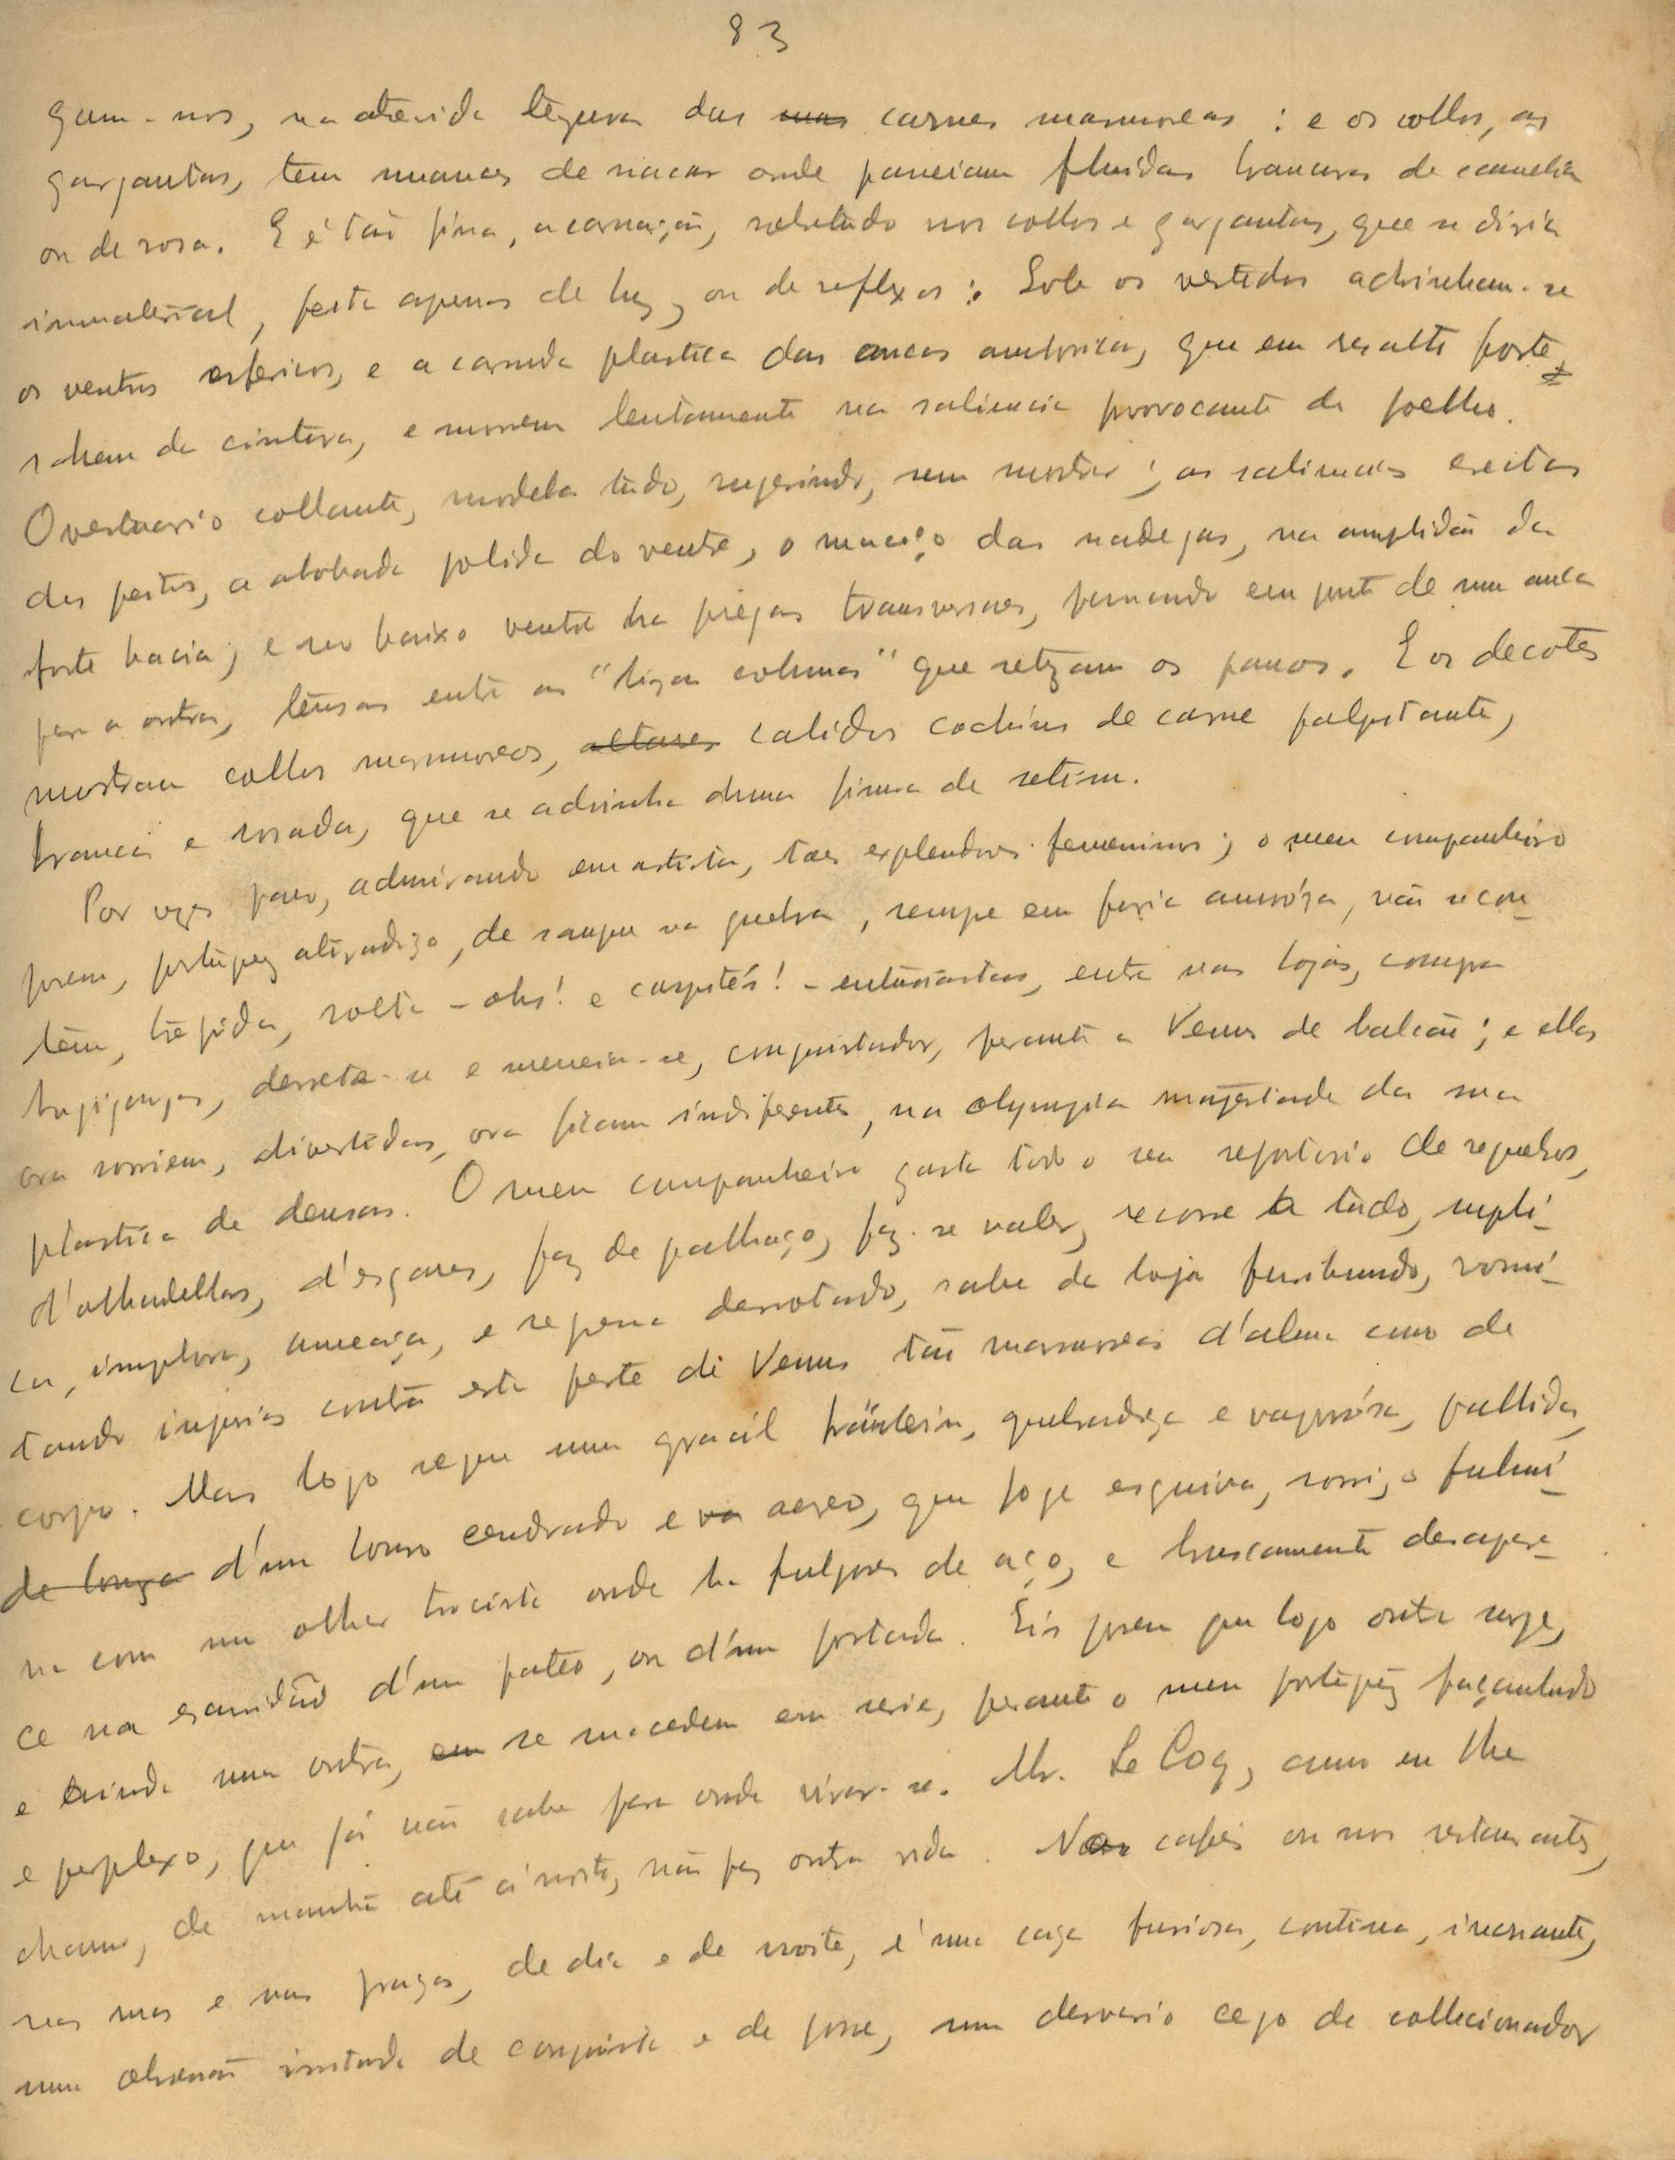 83
gam-nos, na atrevida tezura das suas carnes marmoreas : e os collos, as
gargantas, tem nuances de nacar onde passeiam fluidas brancuras de camelia
ou de rosa. E é tão fina, a carnação, sobretudo nos collos e gargantas, que se diria
immaterial, feita apenas de luz, ou de reflexos : Sob os vestidos adivinham-se
os ventres esfericos, e a carnuda plastica das ancas amforicas, que em resalto forte,
sahem da cintura, e morrem lentamente na saliencia provocante do joelho.
O vestuario collante, modela tudo, sugerindo, sem mostrar ; as saliencias erectas
dos peitos, a abobada polida do ventre, o macisso das nadegas, na amplidão da
forte bacia ; e no baixo ventre ha pregas transversaes, formando em ponte de uma anca
para a outra, tensas entre as "lizas colunas" que retezam os panos. E os decotes
mostram collos marmoreos, altares calidos cochins de carne palpitante,
branca e rosada, que se adivinha duma finura de setim.
Por vezes paro, admirando em artista, taes esplendores femeninos ; o meu companheiro
porem, portuguez atiradiço, de sangue na guelra, sempe em furia amoróza, não se con-
tem, trepida, solta - ohs! e caspités! - entusiastas, entra nas lojas, compra
bugigangas, derrete-se e meneia-se, conquistador, perante a Venus de balcão ; e ellas
ora sorriem, divertidas, ora ficam indiferentes, na olympica magestade da sua
plastica de deusas. O meu companheiro gasta todo o seu reportorio de requebros,
d'olhadellas, d'esgares, faz de palhaço, faz-se valer, recorre a tudo, supli-
ca, implora, ameaça, e se pena derrotado, sahe da loja furibundo, vomi-
tando injurias contra esta peste de Venus tão marmoreas d'alma como de
corpo. Mas logo segue uma gracil fräulein, quebradiça e vaporósa, pallida,
de louça d'um louro cendrado e aereo, que foge esquiva, sorri, o fulmi-
na com um olhar trocista onde ha fulgores de aço, e bruscamente desapare-
ce na escuridão d'um pateo, ou d'um portada. Eis porem que logo outra surge,
e ainda uma outra, em se sucedem em serie, perante o meu portuguez façanhudo
e perplexo, que já não sabe para onde virar-se. Mr. Le Coq, como eu lhe
chamo, de manhã até á noite, não faz outra vida. Nos cafés ou nos restaurantes,
nas ruas e nas praças, de dia e de noite, é uma caça furiosa, continua, incessante,
uma obsessão irritada de conquista e de posse, um desvario cego de collecionador